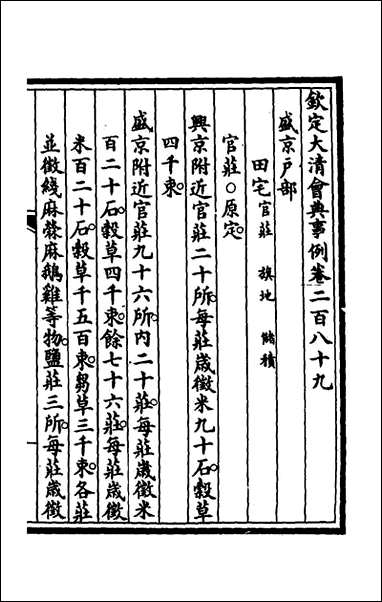 欽定大清會典事例卷二百八十九
盛京戶部
田宅 官莊 旗地 儲積
官莊○原定。
興京附近官莊二十所。每莊歲徵米九十石。穀草
四千束。
盛京附近官莊九十六所。內二十莊。每莊歲徵米
百二十石。穀草四千束。餘七十六莊。每莊歲徵
米百二十石。穀草千五百束。芻草三千束。各莊
並徵綫麻檾麻鵝雞等物。鹽莊三所。每莊歲徵